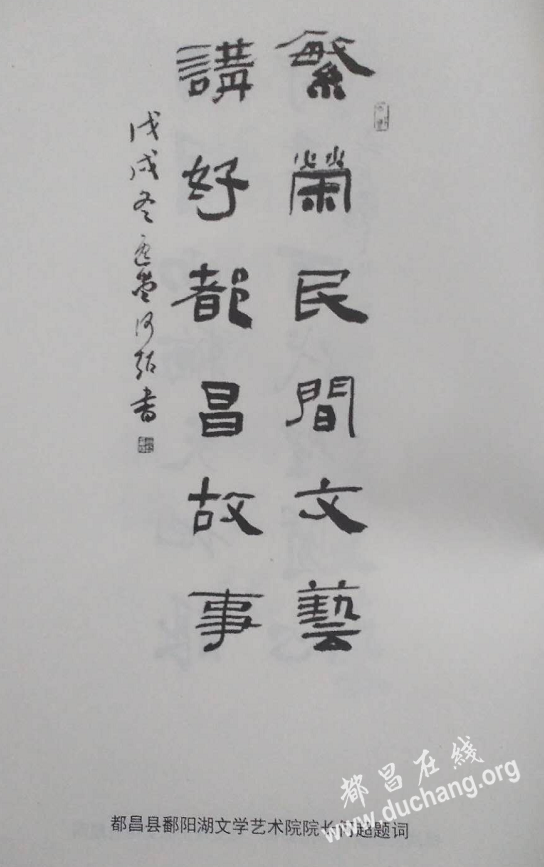 繁榮民間文藝
講好都昌故事
戊戌冬
书
都昌县鄱阳湖文学艺术院院长
题词
都昌在线
www.duchang.org